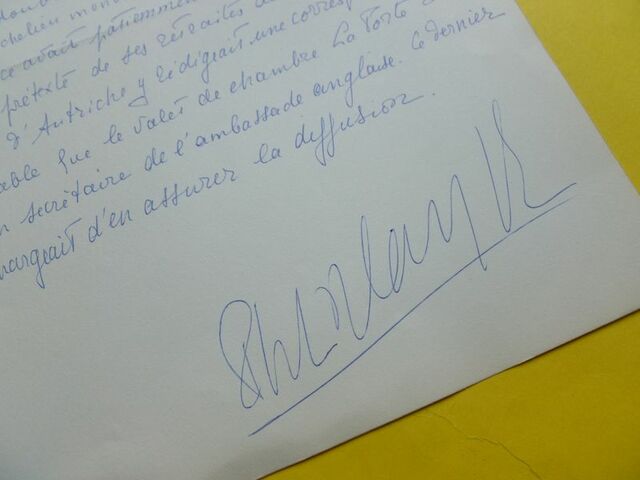 chelieu mon
ce avait patiemment
prétexte de ses retraites
d'Autriche y rédigeait une corresp
able que le valet de chambre La Porte
secrétaire de l'ambassade anglaise. Ce dernier
hargeait d'en assurer la diffusion.